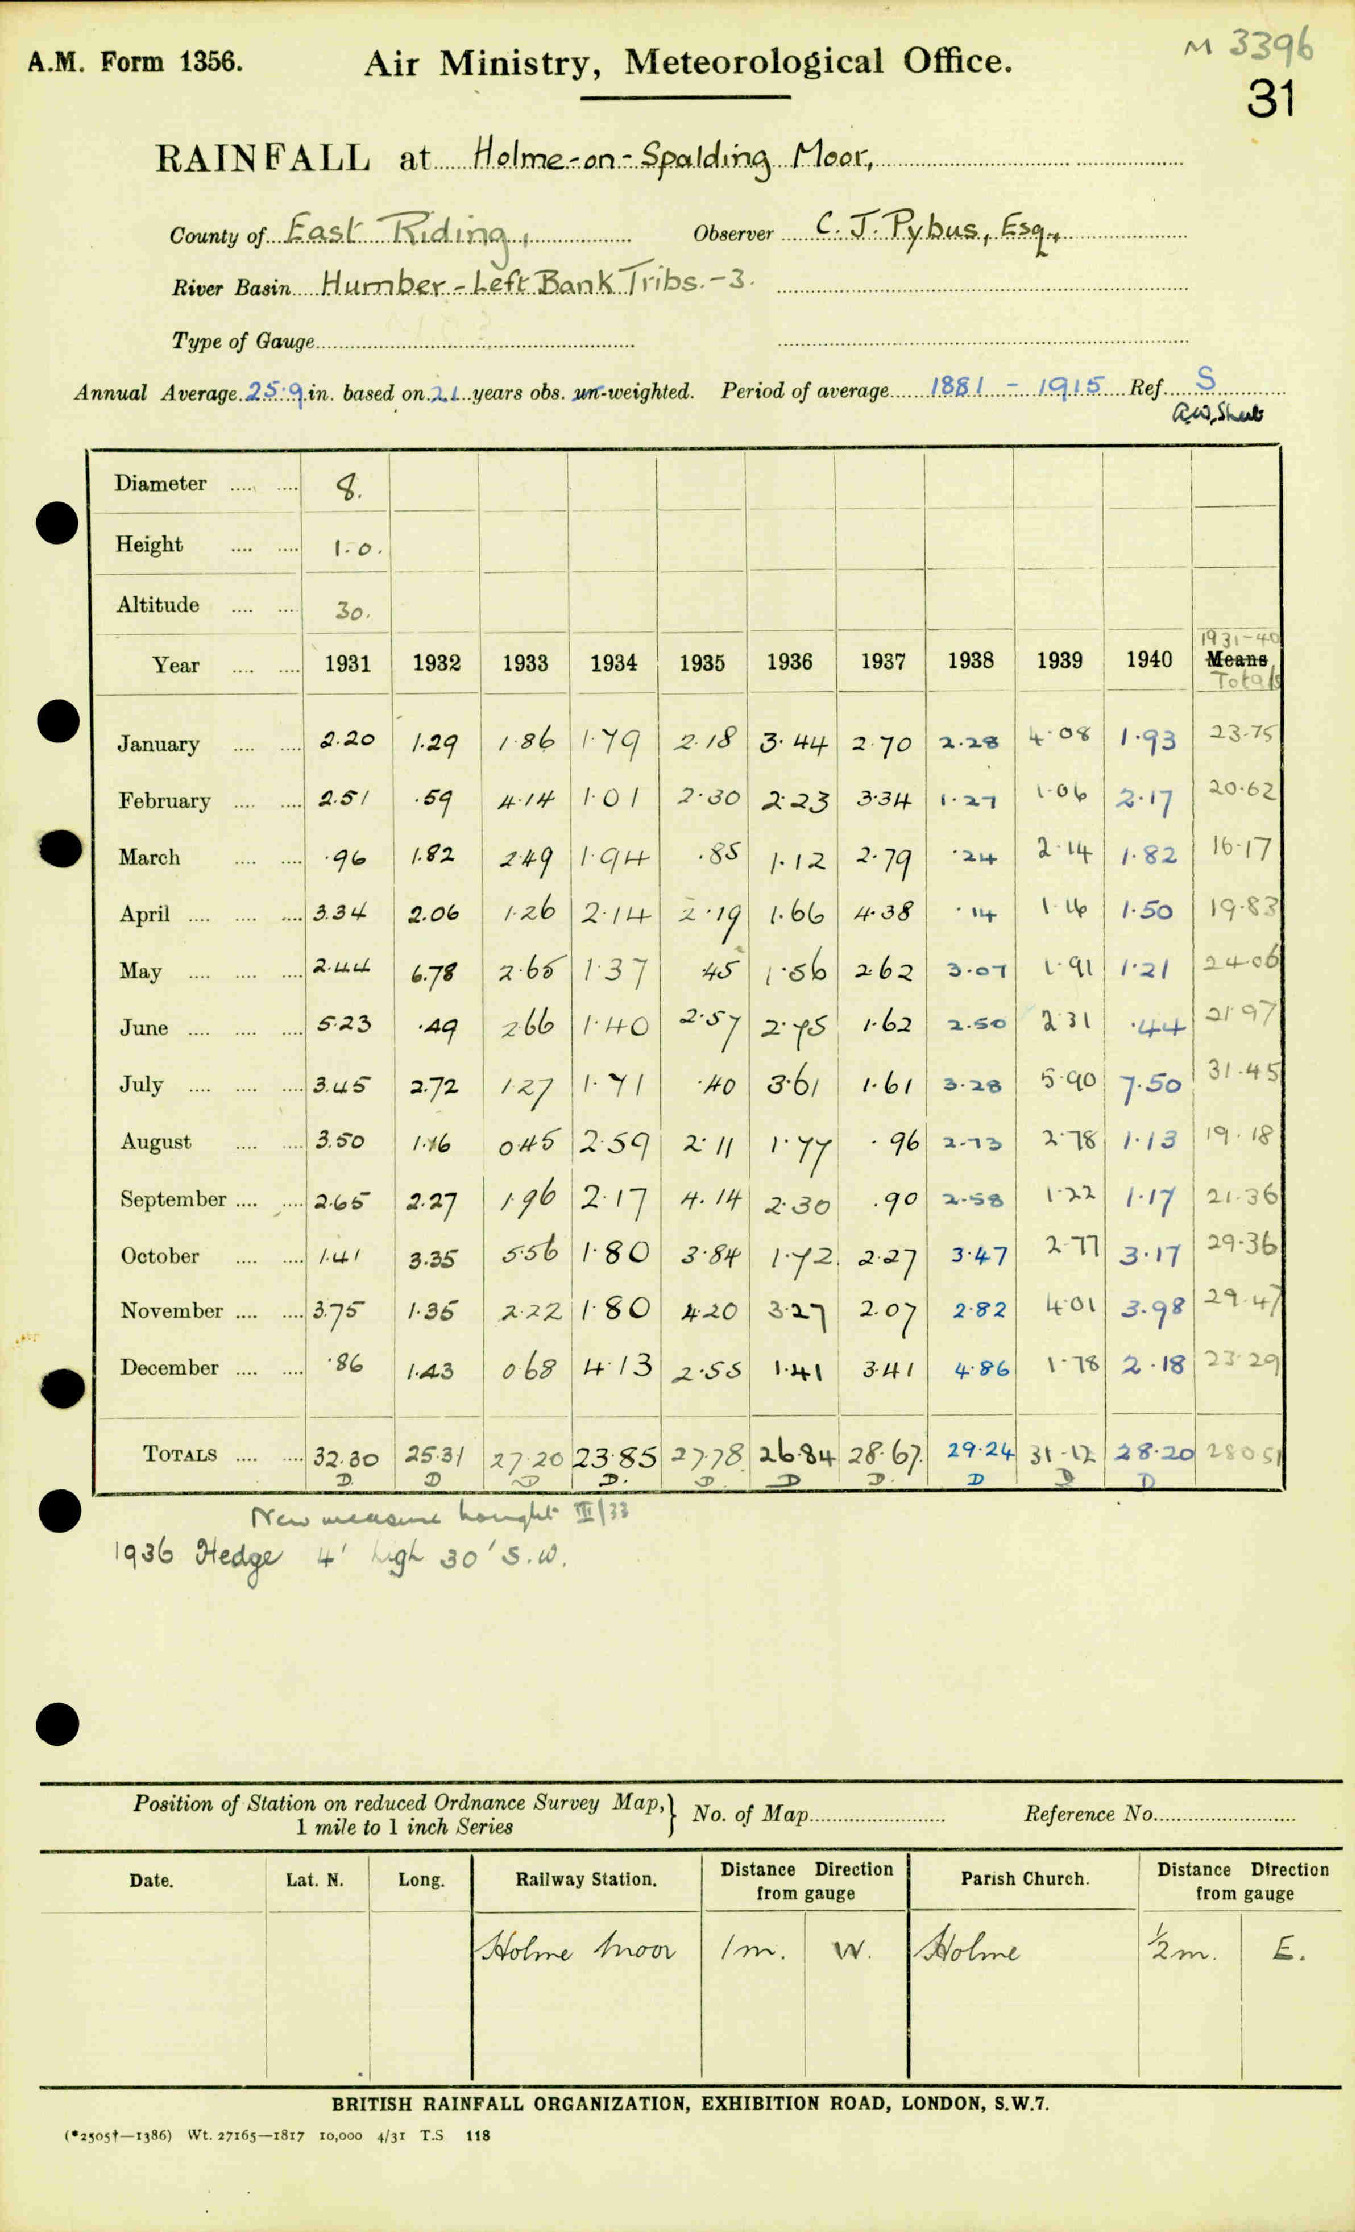 M 3396
A.M. Form 1356. Air Ministry, Meteorological Office.
31
RAINFALL at Holme-on-Spalding Moor,
County of East Riding, Observer C. J. Pybus, Esq.,
River Basin Humber - Left Bank Tribs. - 3.
Type of Gauge
Annual Average 25.9 in. based on 21 years obs. un-weighted. Period of average 1881 - 1915 Ref. S
A.W. Sheet
Diameter 8.
Height 1.0.
Altitude 30.
1931-40
Year 1931 1932 1933 1934 1935 1936 1937 1938 1939 1940 Means
Totals
January 2.20 1.29 1.86 1.79 2.18 3.44 2.70 2.28 4.08 1.93 23.75
February 2.51 .59 4.14 1.01 2.30 2.23 3.34 1.27 1.06 2.17 20.62
March .96 1.82 2.49 1.94 .85 1.12 2.79 .24 2.14 1.82 16.17
April 3.34 2.06 1.26 2.14 2.19 1.66 4.38 .14 1.16 1.50 19.83
May 2.44 6.78 2.65 1.37 .45 1.56 2.62 3.07 1.91 1.21 24.06
June 5.23 .49 2.66 1.40 2.57 2.75 1.62 2.50 2.31 .44 21.97
July 3.45 2.72 1.27 1.71 .40 3.61 1.61 3.28 5.90 7.50 31.45
August 3.50 1.16 0.45 2.59 2.11 1.77 .96 2.73 2.78 1.13 19.18
September 2.65 2.27 1.96 2.17 4.14 2.30 .90 2.58 1.22 1.17 21.36
October 1.41 3.35 5.56 1.80 3.84 1.72 2.27 3.47 2.77 3.17 29.36
November 3.75 1.35 2.22 1.80 4.20 3.27 2.07 2.82 4.01 3.98 29.47
December .86 1.43 0.68 4.13 2.55 1.41 3.41 4.86 1.78 2.18 23.29
TOTALS 32.30 25.31 27.20 23.85 27.78 26.84 28.67. 29.24 31.12 28.20 280.51
D. D D D. D. D D. D D D
New measure bought III/33
1936 Hedge 4' high 30' S.W.
Position of Station on reduced Ordnance Survey Map, No. of Map Reference No.
1 mile to 1 inch Series
Date. Lat. N. Long. Railway Station. Distance Direction from gauge Parish Church. Distance Direction from gauge
Holme Moor 1 m. W. Holme ½ m. E.
BRITISH RAINFALL ORGANIZATION, EXHIBITION ROAD, LONDON, S.W.7.
(*2505†—1386) Wt. 27165—1817 10,000 4/31 T.S 118